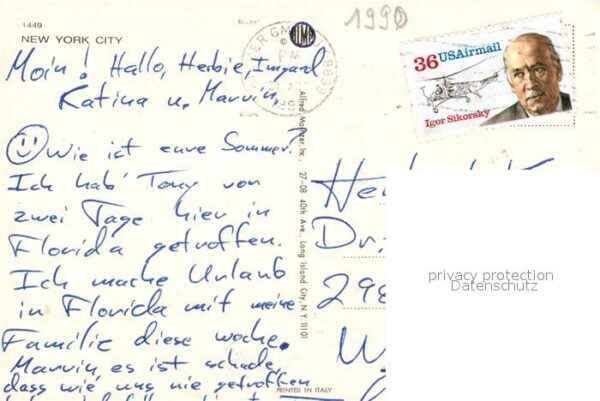 1449
NEW YORK CITY
1990
36 USAirmail
Igor Sikorsky
Moin! Hallo, Herbie, Irmgard
Katina u. Marvin,
Wie ist eure Sommer?
Ich hab' Tony von
zwei Tage hier in
Florida getroffen.
Ich mache Urlaub
in Florida mit meine
Familie diese woche.
Marvin, es ist schade,
dass wir uns nie getroffen
Alfred Mainzer, Inc., 27-08 40th Ave., Long Island City, N.Y. 11101
PRINTED IN ITALY
Dr.
298
privacy protection
Datenschutz